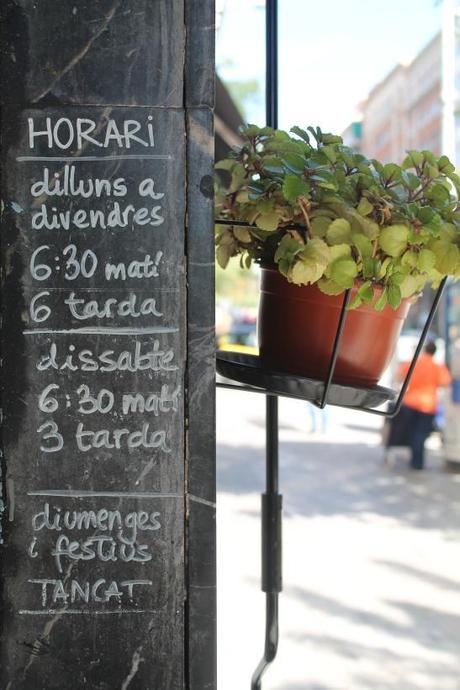 HORARi
dilluns a
divendres
6:30 matí
6 tarda
dissabte
6:30 matí
3 tarda
diumenges
i festius
TANCAT